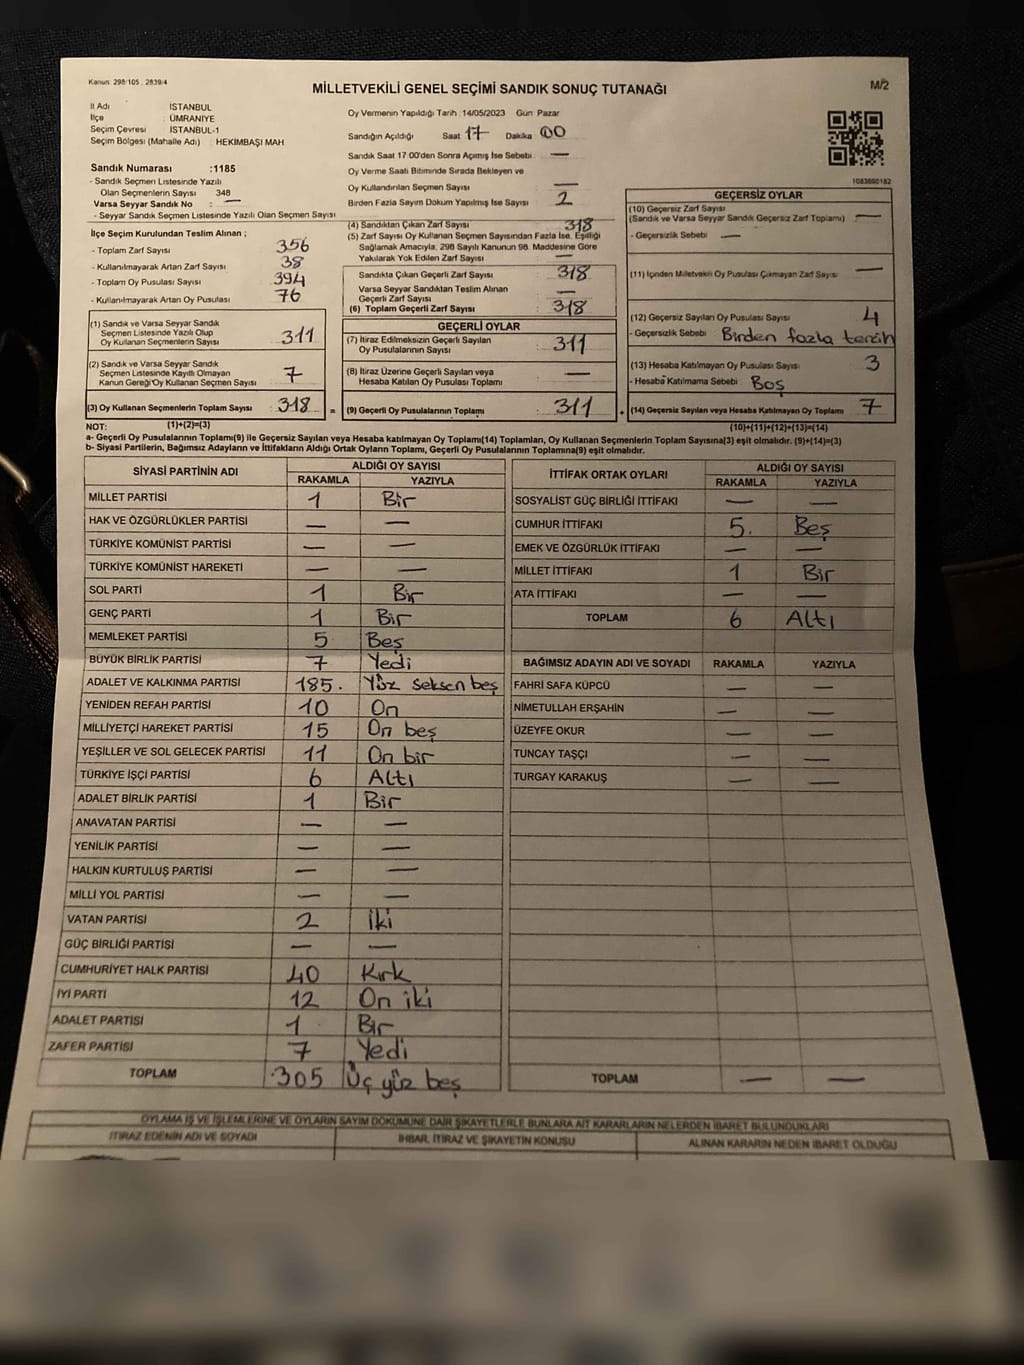 Kanun: 298/105 , 2839/4
MİLLETVEKİLİ GENEL SEÇİMİ SANDIK SONUÇ TUTANAĞI
M/2
İl Adı : İSTANBUL
İlçe : ÜMRANİYE
Seçim Çevresi : İSTANBUL-1
Seçim Bölgesi (Mahalle Adı) : HEKİMBAŞI MAH
Sandık Numarası :1185
- Sandık Seçmen Listesinde Yazılı
Olan Seçmenlerin Sayısı : 348
Varsa Seyyar Sandık No : —
- Seyyar Sandık Seçmen Listesinde Yazılı Olan Seçmen Sayısı :
İlçe Seçim Kurulundan Teslim Alınan ;
- Toplam Zarf Sayısı : 356
- Kullanılmayarak Artan Zarf Sayısı : 38
- Toplam Oy Pusulası : 394
- Kullanılmayarak Artan Oy Pusulası : 76
(1) Sandık ve Varsa Seyyar Sandık
Seçmen Listesinde Yazılı Olup
Oy Kullanan Seçmenlerin Sayısı : 311
(2) Sandık ve Varsa Seyyar Sandık
Seçmen Listesinde Kayıtlı Olmayan
Kanun Gereği Oy Kullanan Seçmen Sayısı : 7
(3) Oy Kullanan Seçmenlerin Toplam Sayısı : 318
Oy Vermenin Yapıldığı Tarih : 14/05/2023 Gün : Pazar
Sandığın Açıldığı Saat 17 Dakika 00
Sandık Saat 17:00'den Sonra Açımış İse Sebebi : —
Oy Verme Saati Bitiminde Sırada Bekleyen ve
Oy Kullandırılan Seçmen Sayısı : —
Birden Fazla Sayım Döküm Yapılmış İse Sayısı : 2
(4) Sandıktan Çıkan Zarf Sayısı : 318
(5) Zarf Sayısı Oy Kullanan Seçmen Sayısından Fazla İse, Eşitliği
Sağlamak Amacıyla, 298 Sayılı Kanunun 98. Maddesine Göre
Yakılarak Yok Edilen Zarf Sayısı : —
Sandıkta Çıkan Geçerli Zarf Sayısı : 318
Varsa Seyyar Sandıktan Teslim Alınan
Geçerli Zarf Sayısı : —
(6) Toplam Geçerli Zarf Sayısı : 318
GEÇERLİ OYLAR
(7) İtiraz Edilmeksizin Geçerli Sayılan
Oy Pusulalarının Sayısı : 311
(8) İtiraz Üzerine Geçerli Sayılan veya
Hesaba Katılan Oy Pusulası Toplamı : —
= (9) Geçerli Oy Pusulalarının Toplamı : 311
1083690182
GEÇERSİZ OYLAR
(10) Geçersiz Zarf Sayısı
(Sandık ve Varsa Seyyar Sandık Geçersiz Zarf Toplamı) : —
- Geçersizlik Sebebi : —
(11) İçinden Milletvekili Oy Pusulası Çıkmayan Zarf Sayısı : —
(12) Geçersiz Sayılan Oy Pusulası Sayısı : 4
- Geçersizlik Sebebi : Birden fazla tercih
(13) Hesaba Katılmayan Oy Pusulası Sayısı : 3
- Hesaba Katılmama Sebebi : Boş
+ (14) Geçersiz Sayılan veya Hesaba Katılmayan Oy Toplamı : 7
NOT: (1)+(2)=(3) (10)+(11)+(12)+(13)=(14)
a- Geçerli Oy Pusulalarının Toplamı(9) ile Geçersiz Sayılan veya Hesaba katılmayan Oy Toplam(14) Toplamları, Oy Kullanan Seçmenlerin Toplam Sayısına(3) eşit olmalıdır. (9)+(14)=(3)
b- Siyasi Partilerin, Bağımsız Adayların ve İttifakların Aldığı Ortak Oyların Toplamı, Geçerli Oy Pusulalarının Toplamına(9) eşit olmalıdır.
SİYASİ PARTİNİN ADI ALDIĞI OY SAYISI
RAKAMLA YAZIYLA
MİLLET PARTİSİ 1 Bir
HAK VE ÖZGÜRLÜKLER PARTİSİ — —
TÜRKİYE KOMÜNİST PARTİSİ — —
TÜRKİYE KOMÜNİST HAREKETİ — —
SOL PARTİ 1 Bir
GENÇ PARTİ 1 Bir
MEMLEKET PARTİSİ 5 Beş
BÜYÜK BİRLİK PARTİSİ 7 Yedi
ADALET VE KALKINMA PARTİSİ 185. Yüz seksen beş
YENİDEN REFAH PARTİSİ 10 On
MİLLİYETÇİ HAREKET PARTİSİ 15 On beş
YEŞİLLER VE SOL GELECEK PARTİSİ 11 On bir
TÜRKİYE İŞÇİ PARTİSİ 6 Altı
ADALET BİRLİK PARTİSİ 1 Bir
ANAVATAN PARTİSİ — —
YENİLİK PARTİSİ — —
HALKIN KURTULUŞ PARTİSİ — —
MİLLİ YOL PARTİSİ — —
VATAN PARTİSİ 2 İki
GÜÇ BİRLİĞİ PARTİSİ — —
CUMHURİYET HALK PARTİSİ 40 Kırk
İYİ PARTİ 12 On iki
ADALET PARTİSİ 1 Bir
ZAFER PARTİSİ 7 Yedi
TOPLAM 305 Üç yüz beş
İTTİFAK ORTAK OYLARI ALDIĞI OY SAYISI
RAKAMLA YAZIYLA
SOSYALİST GÜÇ BİRLİĞİ İTTİFAKI — —
CUMHUR İTTİFAKI 5. Beş
EMEK VE ÖZGÜRLÜK İTTİFAKI — —
MİLLET İTTİFAKI 1 Bir
ATA İTTİFAKI — —
TOPLAM 6 Altı
BAĞIMSIZ ADAYIN ADI VE SOYADI RAKAMLA YAZIYLA
FAHRİ SAFA KÜPCÜ — —
NİMETULLAH ERŞAHİN — —
ÜZEYFE OKUR — —
TUNCAY TAŞÇI — —
TURGAY KARAKUŞ — —
TOPLAM — —
OYLAMA İŞ VE İŞLEMLERİNE VE OYLARIN SAYIM DÖKÜMÜNE DAİR ŞİKAYETLERLE BUNLARA AİT KARARLARIN NELERDEN İBARET BULUNDUKLARI
İTİRAZ EDENİN ADI VE SOYADI İHBAR, İTİRAZ VE ŞİKAYETİN KONUSU ALINAN KARARIN NEDEN İBARET OLDUĞU